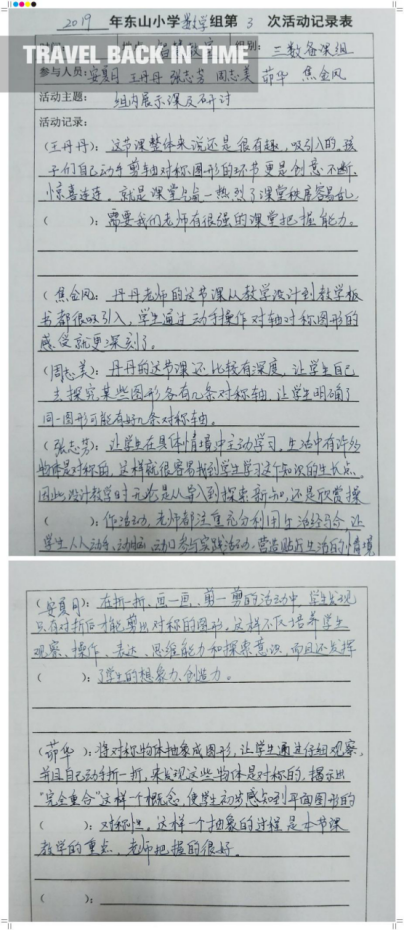 2019 年东山小学数学组第 3 次活动记录表
TRAVEL BACK IN TIME
三数备课组
参与人员: 安夏月 王丹丹 张志芳 周志美 茆华 焦金凤
活动主题: 组内展示课及研讨
活动记录:
(王丹丹): 这节课整体来说还是很有趣,吸引人的。孩
子们自己动手剪轴对称图形的环节更是创意不断,
惊喜连连。就是课堂气氛一热烈了课堂秩序容易乱,
( ): 需要我们老师有很强的课堂把握能力。
(焦金凤): 丹丹老师的这节课从教学设计到教学板
书都很吸引人,学生通过动手操作对轴对称图形的
感受就更深刻了。
(周志美): 丹丹的这节课还比较有深度,让学生自己
去探究某些图形各有几条对称轴,让学生明确了
同一图形可能有好几条对称轴。
(张志芳): 让学生在具体情境中主动学习,生活中有许多
物体是对称的,这样就很容易找到学生学习这个知识的生长点,
因此设计教学时无论是从导入到探索新知,还是欣赏操
( ): 作活动,老师都注重充分利用生活经验,让
学生人人动手、动脑、动口参与实践活动,营造贴近生活的情境
(安夏月): 在折一折、画一画、剪一剪的活动中,学生发现
只有对折后才能剪出对称的图形。这样不仅培养学生
观察、操作、表达、思维能力和探索意识,而且还发挥
( ): 了学生的想象力、创造力。
(茆华): 将对称物体抽象成图形,让学生通过仔细观察,
并且自己动手折一折,来发现这些物体是对称的,揭示出
"完全重合"这样一个概念,使学生初步感知到平面图形的
( ): 对称性。这样一个抽象的过程是本节课
教学的重点,老师把握的很好。
( ):